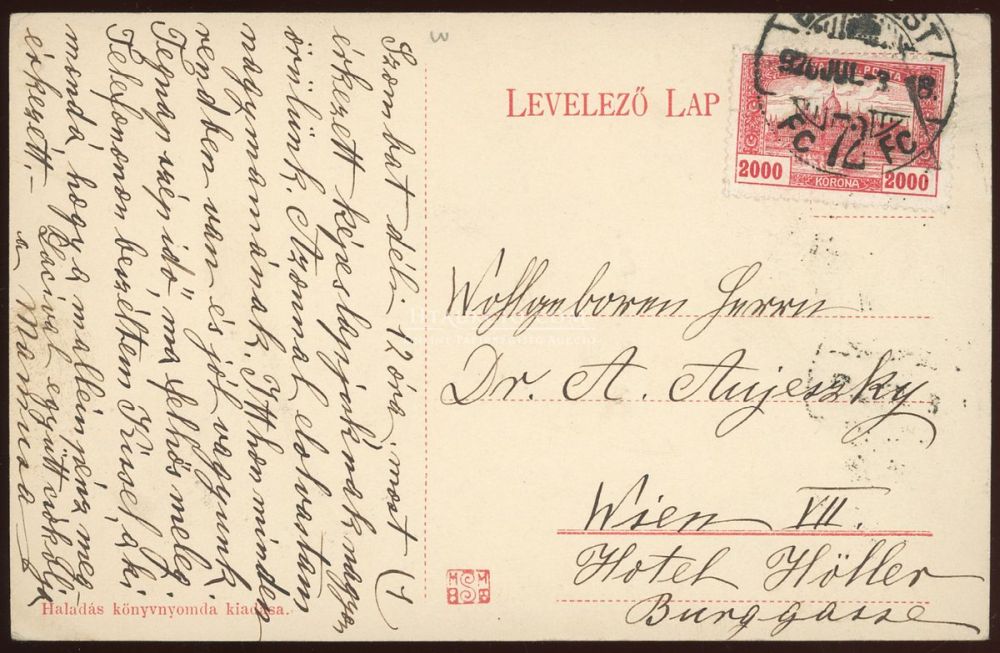 Szombat déli 12 óra, most
érkezett képes lapjuk nak nagyon
örülünk. Azonnal elolvastam
nagymamának. Itthon minden
rendben van és jól vagyunk
Tegnap szép idő, ma felhős meleg
Telefonon beszéltem
monda, hogy a
érkezett.- Lacival együtt csókolja
a Mama
LEVELEZŐ LAP
926 JUL -3 18
72
FC FC
POSTA
2000 KORONA 2000
Wohlgeboren Herrn
Dr. A. Aujeszky
Wien VII.
Hotel Höller
Burggasse
M M
S
Haladás könyvnyomda kiadása.